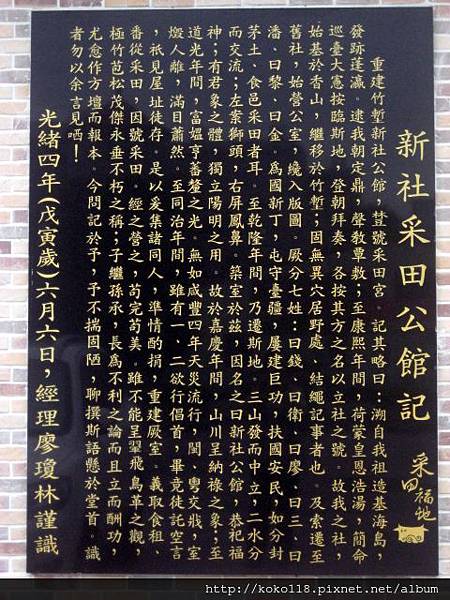 新社采田公館記
采田福地
重建竹塹新社公館，豎號采田宮。記其略曰：溯自我祖造基海島，
發跡蓬瀛。逮我朝定鼎，聲敎覃敷；至康熙年間，荷蒙皇恩浩湯，簡命
巡臺大憲按臨斯地，登朝拜奏，各按其方之名以立社之號。故我之社，
始基於香山，繼移於竹塹；固無異穴居野處、結繩記事者也。及索還至
舊社，始營公室，纔入版圖。厥分七姓：曰錢、曰衛、曰廖、曰三、曰
潘、曰黎、曰金。爲國新丁，屯守臺疆，屢建巨功，扶國安民，如分封
茅土、食邑采田者耳。至乾隆年間，乃遷斯地。三山發而中立，二水分
而交流；左案獅頭，右屏鳳鼻。築室於兹，因名之曰新社公館，恭祀福
神；有君象之體，獨立陽明之用。故於嘉慶年間，山川呈納祿之象；至
道光年間，富媼亨蕃釐之光。無如咸豐四年天災流行，閩、粵交戕，室
燬人離，滿目蕭然。至同治年間，雖有一、二欲行倡首，畢竟徒託空言
，祇見屋址徒存。是以爰集諸同人，準情酌捐，重建厥室。義取食租、
番從采田，因號采田。經之營之，苟完苟美。雖不能呈翬飛鳥革之觀，
極竹苞松茂傑永垂不朽之稱；子繼孫承，長爲不刊之論而且立而酬功，
尤愈作方壇而報本。今問記於予，予不揣固陋，聊撰斯語懸於堂首。識
者勿以余言見哂！
光緒四年(戊寅歲)六月六日，經理廖瓊林謹識
http://koko118.pixnet.net/album